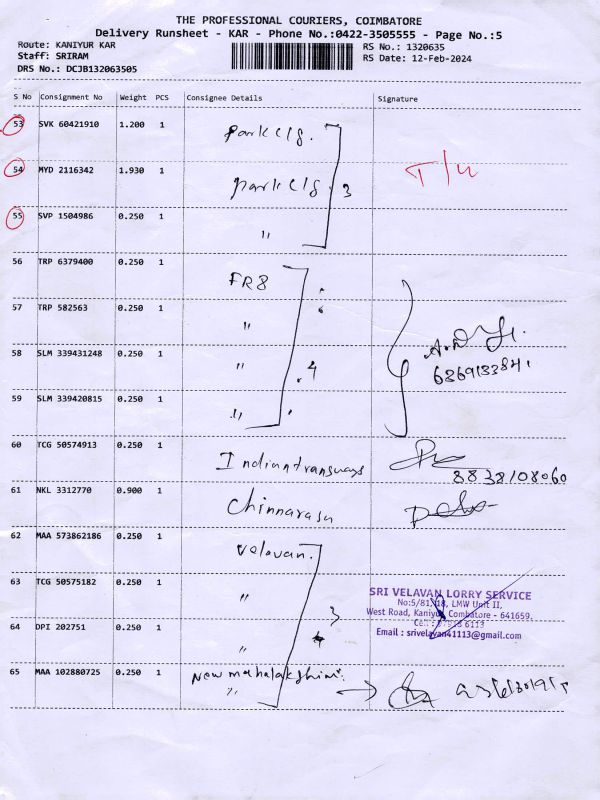 THE PROFESSIONAL COURIERS, COIMBATORE
Delivery Runsheet - KAR - Phone No.:0422-3505555 - Page No.:5
Route: KANIYUR KAR
RS No.: 1320635
Staff: SRIRAM
RS Date: 12-Feb-2024
DRS No.: DCJB132063505
S No Consignment No Weight PCS Consignee Details Signature
53 SVK 60421910 1.200 1 park clg.
54 MYD 2116342 1.930 1 park clg. 3 T/u
55 SVP 1504986 0.250 1 "
56 TRP 6379400 0.250 1 FR8
57 TRP 582563 0.250 1 "
58 SLM 339431248 0.250 1 " 4
59 SLM 339420815 0.250 1 "
60 TCG 50574913 0.250 1 Indiantransways 8838108060
61 NKL 3312770 0.900 1 chinnarasu
62 MAA 573862186 0.250 1 velavan.
63 TCG 50575182 0.250 1 "
64 DPI 202751 0.250 1 " 3
65 MAA 102880725 0.250 1 New mahalakshimi
"
SRI VELAVAN LORRY SERVICE
No:5/81, LMW Unit II,
West Road, Kaniyur, Coimbatore - 641659.
6113
Email : srivelavan41113@gmail.com